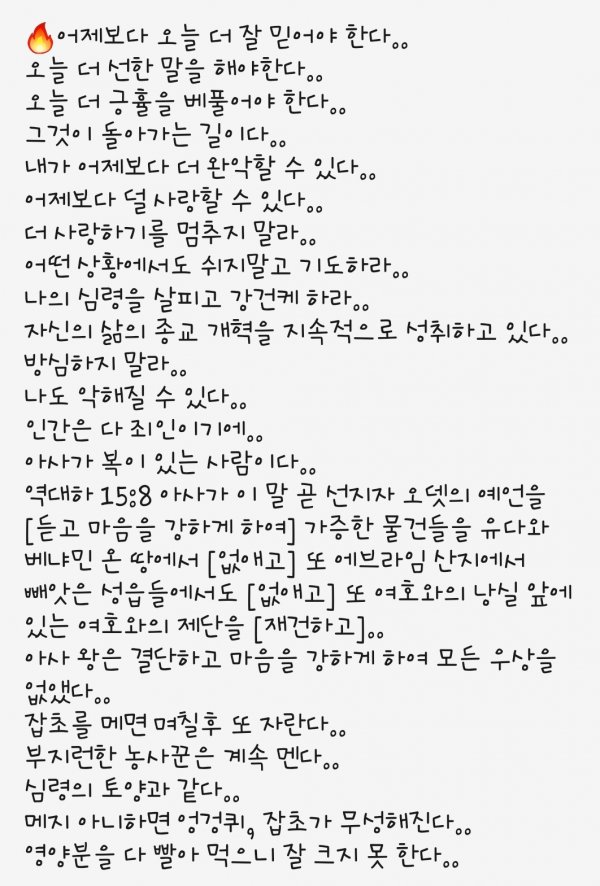 🔥어제보다 오늘 더 잘 믿어야 한다。。
오늘 더 선한 말을 해야한다。。
오늘 더 긍휼을 베풀어야 한다。。
그것이 돌아가는 길이다。。
내가 어제보다 더 완악할 수 있다。。
어제보다 덜 사랑할 수 있다。。
더 사랑하기를 멈추지 말라。。
어떤 상황에서도 쉬지말고 기도하라。。
나의 심령을 살피고 강건케 하라。。
자신의 삶의 종교 개혁을 지속적으로 성취하고 있다。。
방심하지 말라。。
나도 악해질 수 있다。。
인간은 다 죄인이기에。。
아사가 복이 있는 사람이다。。
역대하 15:8 아사가 이 말 곧 선지자 오뎃의 예언을
[듣고 마음을 강하게 하여] 가증한 물건들을 유다와
베냐민 온 땅에서 [없애고] 또 에브라임 산지에서
빼앗은 성읍들에서도 [없애고] 또 여호와의 낭실 앞에
있는 여호와의 제단을 [재건하고]。。
아사 왕은 결단하고 마음을 강하게 하여 모든 우상을
없앴다。。
잡초를 메면 며칠후 또 자란다。。
부지런한 농사꾼은 계속 멘다。。
심령의 토양과 같다。。
메지 아니하면 엉겅퀴, 잡초가 무성해진다。。
영양분을 다 빨아 먹으니 잘 크지 못 한다。。